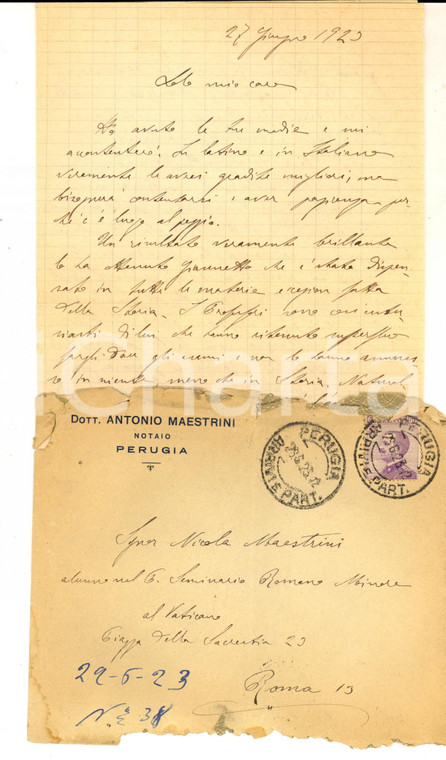 27 Giugno 1923
Lolo mio caro
Ho avuto le tue medie e mi
accontenterò. In latino e in Italiano
veramente le avrei gradite migliori, ma
bisognerà contentarsi e aver pazienza per-
chè c'è luogo al peggio.
Un risultato veramente brillante
lo ha ottenuto che è stato dispen-
sato in tutte le materie eccezion fatta
della Storia. I Professori sono
di lui che hanno ritenuto superfluo
fargli dare gli esami e non lo hanno ammes-
so in niente meno che in Storia. Natural
DOTT. ANTONIO MAESTRINI
NOTAIO
PERUGIA
PERUGIA
ARRIVI E PART.
PERUGIA
ARRIVI E PART.
Signor Nicola Maestrini
alunno nel P. Seminario Romano Minore
al Vaticano
Piazza della Sacrestia 23
29-6-23
Roma 13
N. 38